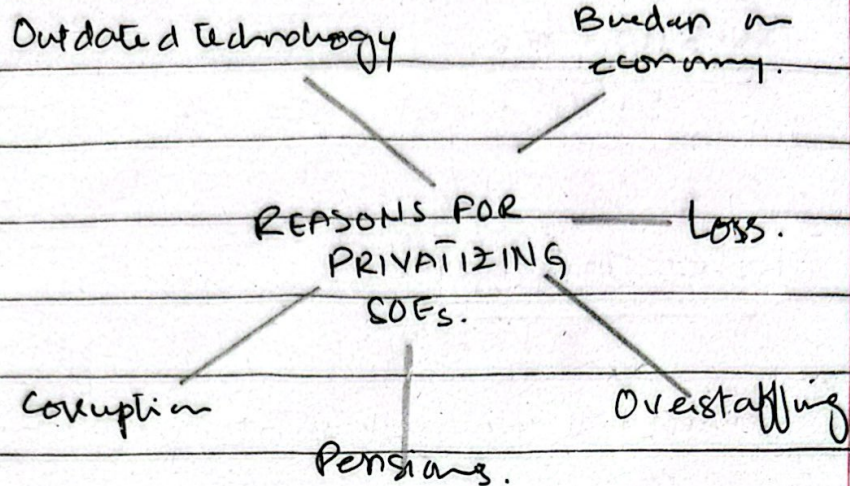 Outdated technology
Burden on
economy.
REASONS FOR
PRIVATIZING
SOEs.
Loss.
Corruption
Overstaffing
Pensions.